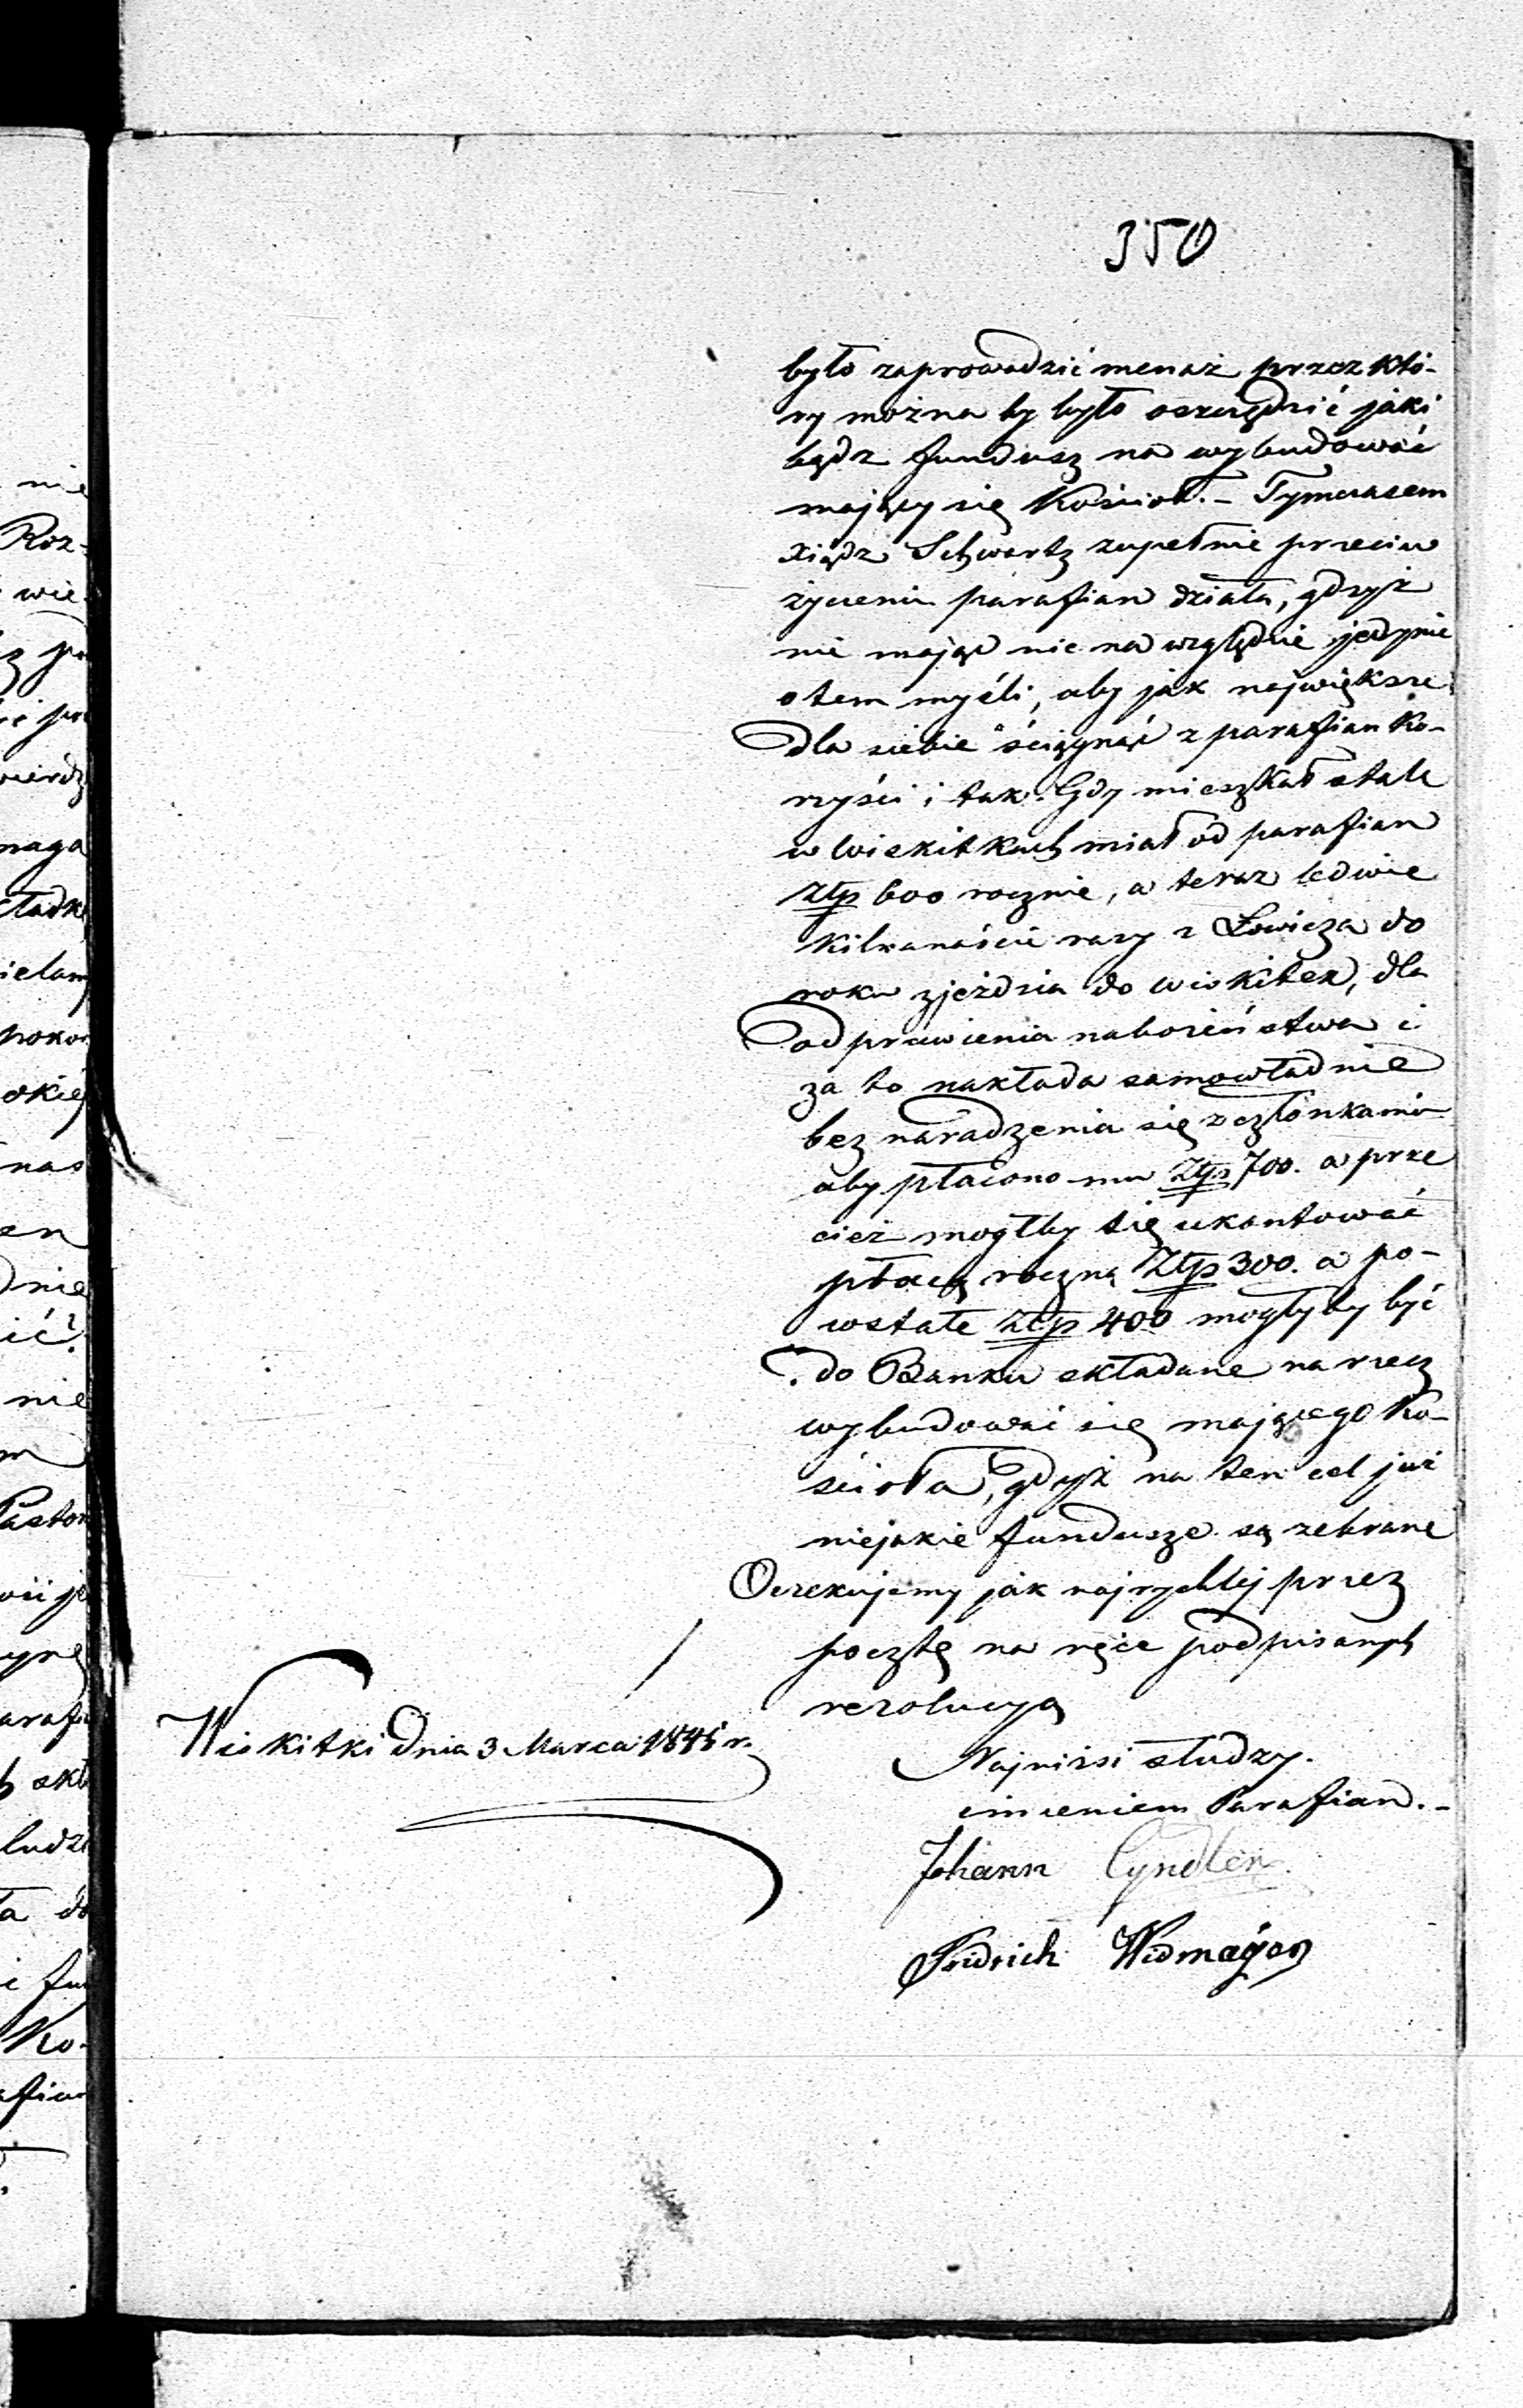 350
było zaprowadzić menaż przez któ-
ry można by było oszczędzić jaki
bądz fundusz na wybudować
mający się Kościoł. - Tymczasem
xiądz Schwartz zupełnie przeciw
życzeniu parafian działa, gdzyż
nie mając nic na względzie jedynie
o tem myśli, aby jak największe
dla siebie ściągnąć z parafian ko-
rzyści i tak. Gdy mieszkał stale
w Wiskitkach miał od parafian
Ztp 600 rocznie, a teraz ledwie
kilkanaście razy z Łowicza do
roku zjeżdzia do Wiskitek, dla
odprawienia nabożeństwa i
za to nakłada samowładnie
bez naradzenia się z członkami
aby płacono mu Ztp 700. a prze
cież mogłby się ukontować
płacą roczną Ztp 300. a po-
wstałe Ztp 400 mogłyby być
do Banku składane na rzecz
wybudować się mającego Ko-
ścioła, gdyż na ten cel już
niejakie fundusze są zebrane
Oczekujemy jak najrychlej przez
pocztę na ręce podpisanych
rezolucyą
Wiskitki dnia 3 Marca 1845 r.
Najniżsi słudzy.
imieniem Parafian. -
Johann Cyndler
Fridrich Widmayer
nie
Roz-
wie
naga
kładk
ielam
pokor
skiej
nas
en
dnie
ić?
nie
m
Pastor
parafi
skł
ludzi
ła do
i fun
Ko-
afian